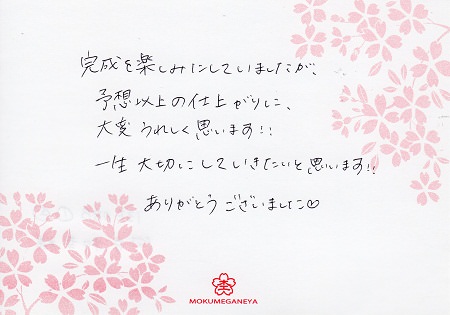 完成を楽しみにしていましたが、
予想以上の仕上がりに、
大変うれしく思います!!
一生大切にしていきたいと思います!!
ありがとうございました♡
MOKUMEGANEYA